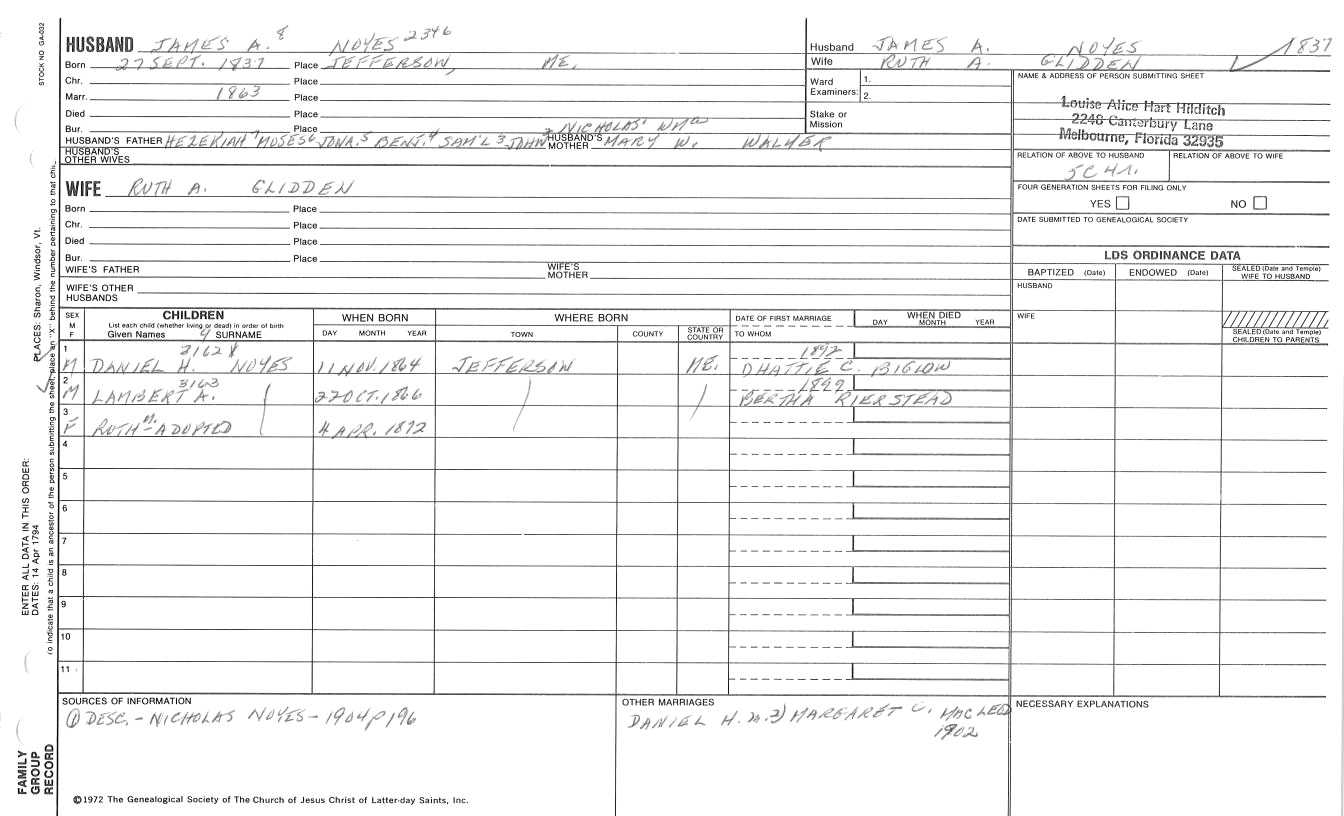 STOCK NO GA-032
HUSBAND JAMES A. 8 NOYES 2346
Born 27 SEPT. 1837 Place JEFFERSON, ME.
Chr. Place
Marr. 1863 Place
Died Place
Bur. Place
HUSBAND'S FATHER HEZEKIAH 7 MOSES 6 JONA. 5 BENJ. 4 SAM'L 3 JOHN 2 NICHOLAS' WM a HUSBAND'S MOTHER MARY W. WALKER
HUSBAND'S OTHER WIVES
WIFE RUTH A. GLIDDEN
Born Place
Chr. Place
Died Place
Bur. Place
WIFE'S FATHER WIFE'S MOTHER
WIFE'S OTHER HUSBANDS
Husband JAMES A. NOYES 1837
Wife RUTH A. GLIDDEN
Ward Examiners: 1.
2.
Stake or Mission
NAME & ADDRESS OF PERSON SUBMITTING SHEET
Louise Alice Hart Hilditch
2248 Canterbury Lane
Melbourne, Florida 32935
RELATION OF ABOVE TO HUSBAND RELATION OF ABOVE TO WIFE
5C 4R.
FOUR GENERATION SHEETS FOR FILING ONLY
YES NO
DATE SUBMITTED TO GENEALOGICAL SOCIETY
LDS ORDINANCE DATA
BAPTIZED (Date) ENDOWED (Date) SEALED (Date and Temple) WIFE TO HUSBAND
HUSBAND
WIFE
SEALED (Date and Temple) CHILDREN TO PARENTS
SEX M F CHILDREN WHEN BORN WHERE BORN DATE OF FIRST MARRIAGE WHEN DIED
List each child (whether living or dead) in order of birth
Given Names 9 SURNAME DAY MONTH YEAR TOWN COUNTY STATE OR COUNTRY TO WHOM DAY MONTH YEAR
1 3162 1892
M DANIEL H. NOYES 11 NOV. 1864 JEFFERSON ME. HATTIE C. BIGLOW
2 3163 1899
M LAMBERT A. 22 OCT. 1866 BERTHA RIERSTEAD
3
F RUTH M. - ADOPTED 4 APR. 1892
4
5
6
7
8
9
10
11
SOURCES OF INFORMATION
① DESC. - NICHOLAS NOYES - 1904 p 196
OTHER MARRIAGES
DANIEL H. m. 2) MARGARET C. MAC LEOD
1902
NECESSARY EXPLANATIONS
©1972 The Genealogical Society of The Church of Jesus Christ of Latter-day Saints, Inc.
FAMILY GROUP RECORD
ENTER ALL DATA IN THIS ORDER:
DATES: 14 Apr 1794
PLACES: Sharon, Windsor, Vt.
To indicate that a child is an ancestor of the person submitting the sheet, place an "X" behind the number pertaining to that chi